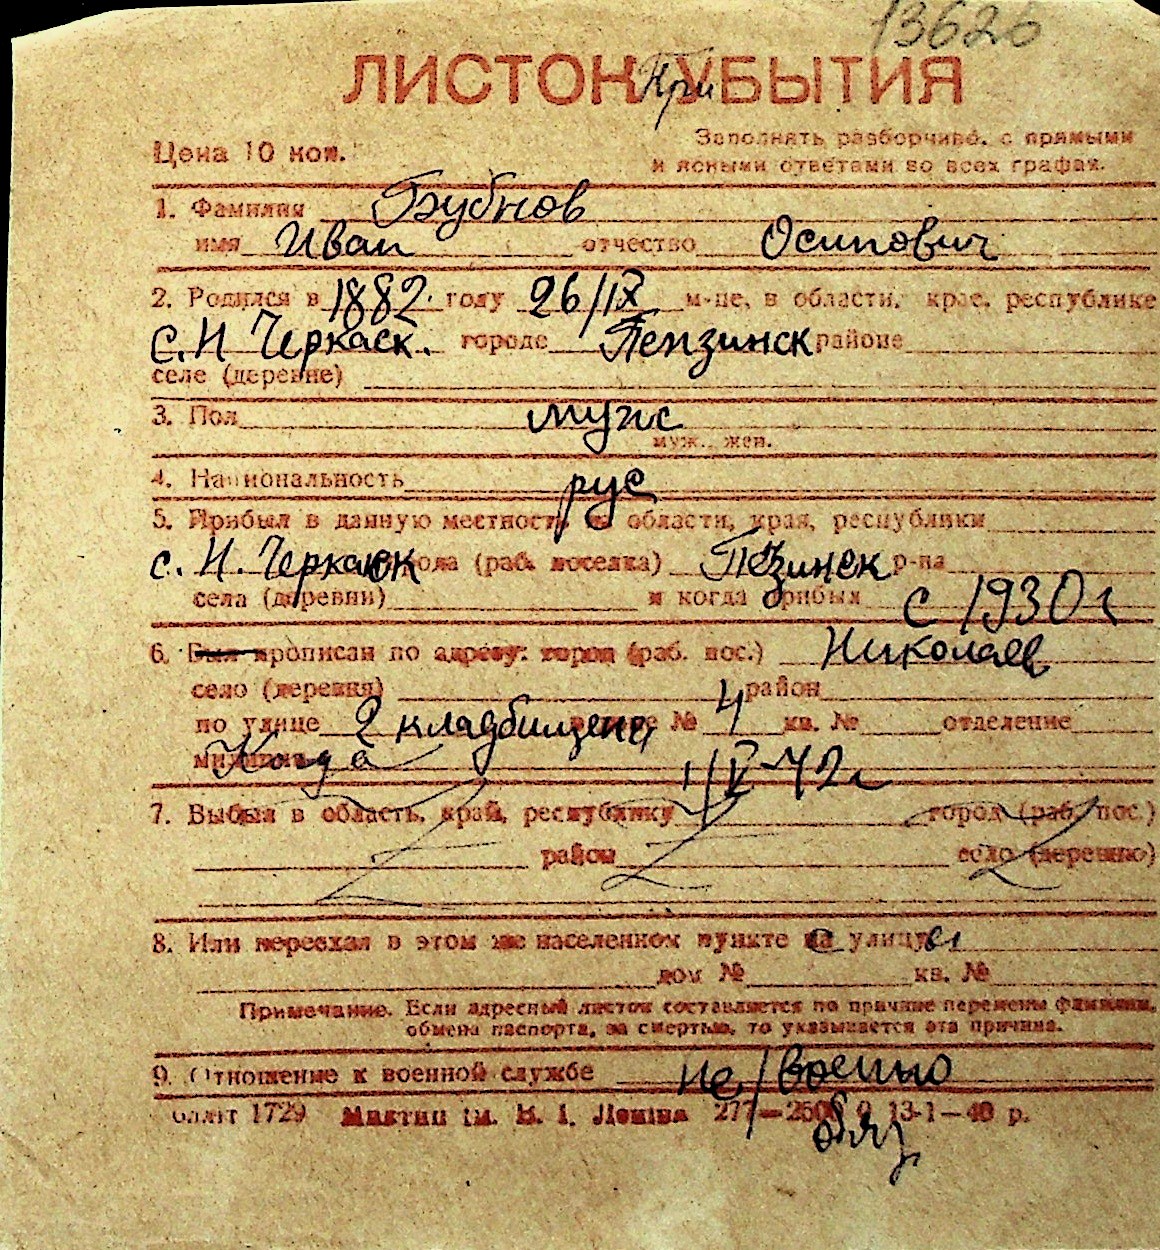 13626
ЛИСТОК При УБЫТИЯ
Цена 10 коп.
Заполнять разборчиво, с прямыми
и ясными ответами во всех графах.
1. Фамилия Бубнов
имя Иван отчество Осипович
2. Родился в 1882. году 26/IX м-це, в области, крае, республике
с. Н Черкаск. городе Пензинск районе
селе (деревне)
3. Пол мужс
муж., жен.
4. Национальность рус
5. Прибыл в данную местность из области, края, республики
с. Н. Черкаск города (раб. поселка) Пезинск р-на
села (деревни) и когда прибыл с 1930 г
6. Был прописан по адресу: город (раб. пос.) Николаев
село (деревня) район
по улице 2 кладбищене № 4 кв. № отделение
милиции Когда 1/V-42 г
7. Выбыл в область, край, республику город (раб. пос.)
район село (деревню)
8. Или переехал в этом же населенном пункте на улицу
дом № кв. №
Примечание. Если адресный листок составляется по причине перемены фамилии,
обмена паспорта, за смертью, то указывается эта причина.
9. Отношение к военной службе не/военно
обяз
облліт 1729 Миктип ім. В. І. Леніна 277—2500 0 13-1—40 р.